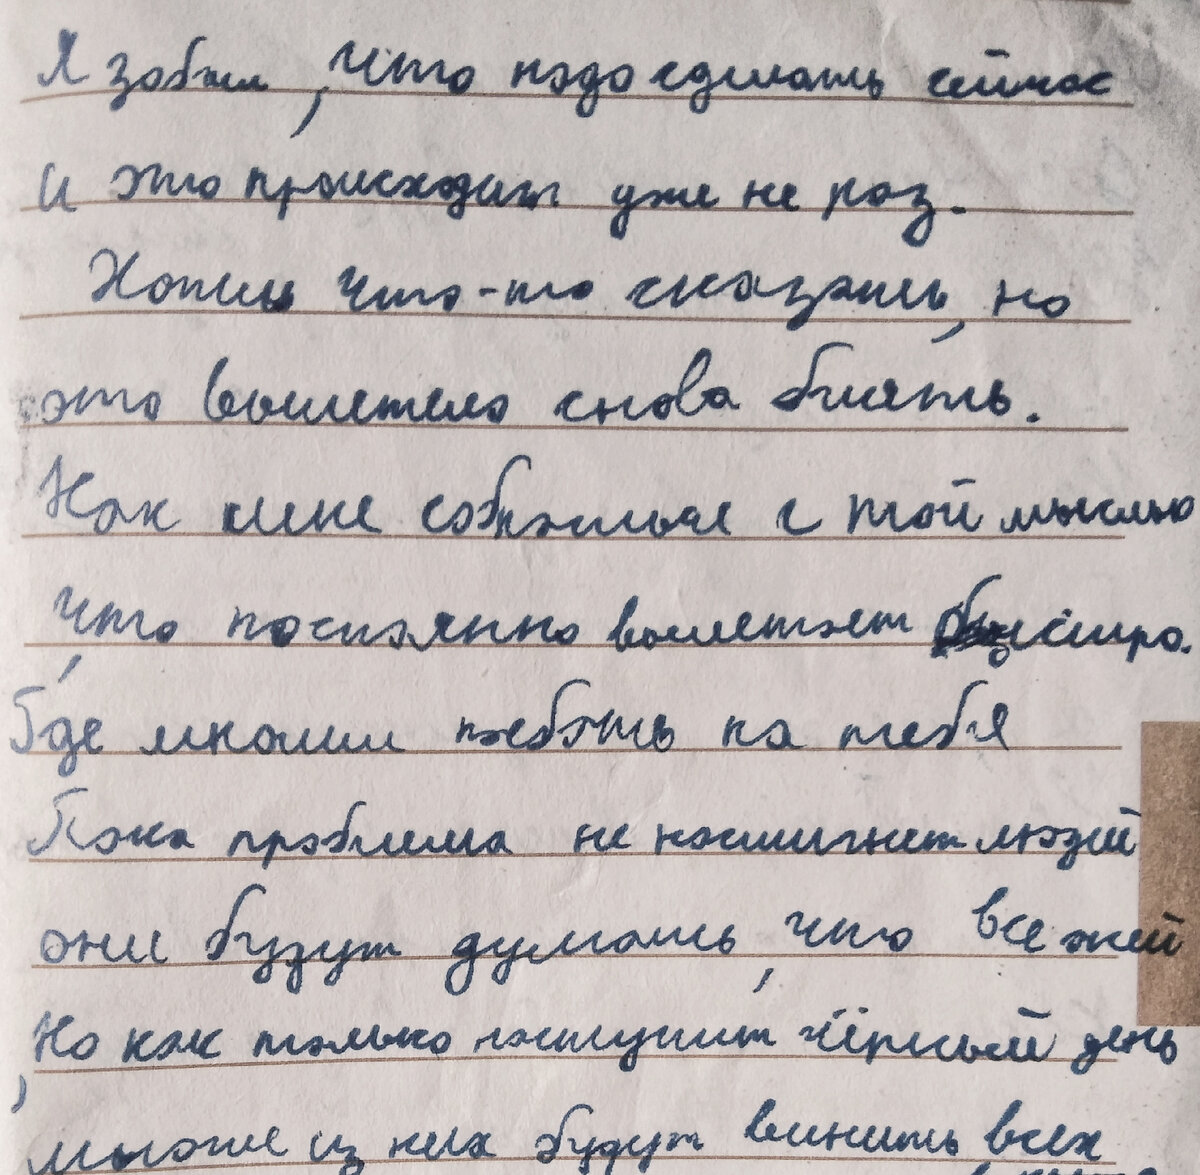 Я забыл, что надо сделать сейчас
и это происходит уже не раз.
Хотел что-то сказать, но
это вылетело снова блять.
Как мне собраться с той мыслью
что постоянно вылетает быстро.
Где многим поебать на тебя
Пока проблема не настигнет людей
они будут думать, что все
Но как только наступит чёрный день,
многие из них будут винить всех